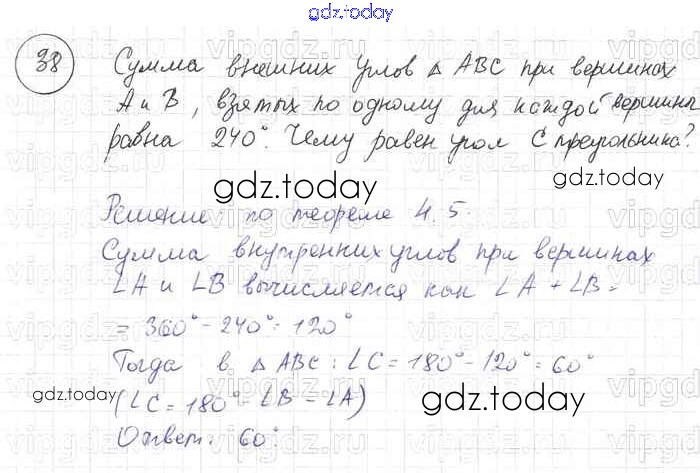 gdz.today
38 Сумма внешних углов Δ ABC при вершинах
A и B, взятых по одному для каждой вершины
равна 240°. Чему равен угол C треугольника?
gdz.today
Решение: по теореме 4.5.
Сумма внутренних углов при вершинах
∠A и ∠B вычисляется как ∠A + ∠B =
= 360° - 240° = 120°
Тогда в Δ ABC: ∠C = 180° - 120° = 60°
(∠C = 180° - ∠B - ∠A)
gdz.today gdz.today
Ответ: 60°.